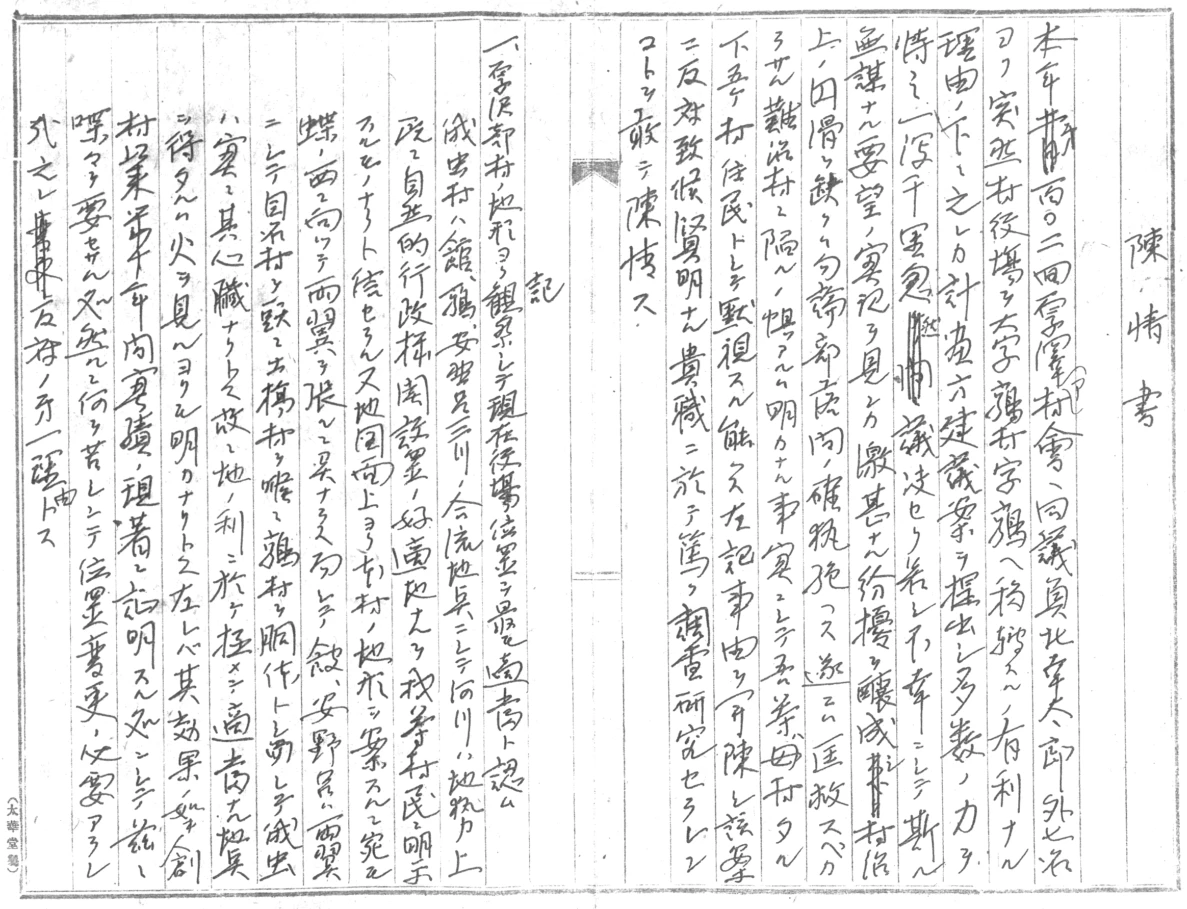 陳情書
本年 百〇二回厚澤村會ニ 同議員北幸太郎外七名
ヨリ突然村役場ヲ大字鶉村字鶉ヘ移轉スルノ有利ナル
理由ノ下ニ之レカ計画 建議案ヲ提出シ多数ノ力ヲ
恃ミ一潟千里忽然 議决セリ若シ不幸ニシテ斯ル
無謀ナル要望ノ実現ヲ見ンカ激甚ナル紛擾ヲ醸成シ村治
上ノ円滑ヲ缺クハ勿論部落間ノ確執絶ヘス遂ニハ匡救スベカ
ラサル難治村ニ陥ルノ惧アルハ明カナル事実ニシテ吾等母村タル
下五ヶ村住民トシテ黙視スル能ハス左記事由ヲ開陳シ該案
ニ反対致候賢明ナル貴職ニ於テ篤ク調査研究セラレン
コトヲ敢テ陳情ス
記
一、厚沢部村ノ地形ヨリ観察シテ現在役場位置ヲ最モ適当ト認ム
俄虫村ハ館、鶉、安野呂三川ノ合流地点ニシテ河川ハ地勢上
既ニ自然的行政機関設置ノ好適地ナルヲ我等村民ニ明示
スルモノナリト信セラル又地図面上ヨリ本村ノ地形ヲ案スルニ宛モ
蝶ノ西ニ向ツテ両翼ヲ張ルニ異ナラス而シテ館、安野呂ハ両翼
ニシテ目名村ヲ頭ニ土橋村ヲ喉ニ鶉村ヲ胴体トシ而シテ俄虫
ハ実ニ其心臓ナリトス故ニ地ノ利ニ於ケ極メテ適当ナル地点
ヲ得タルハ火ヲ見ルヨリモ明カナリトス左レバ其効果ノ如キ創
村以来幾十年間実績ノ現著ニ証明スル処ニシテ茲ニ
喋々ヲ要セサル処然ルニ何ヲ苦シンテ位置変更ノ必要アラン
之レ 反対ノ第一理由トス
(太華堂製)